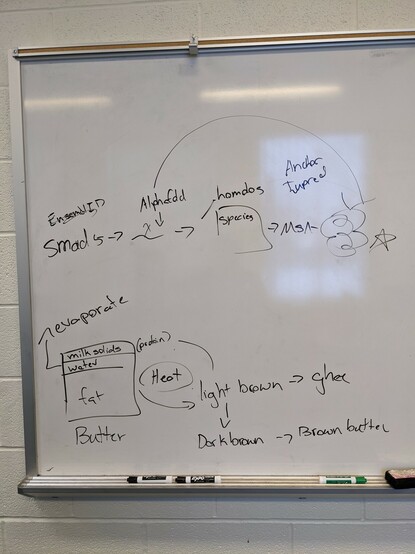 EnsemblID
Smad 5 →
Alphafold
→
homologs
species
→ MSA
Anchor
Iupred
evaporate
milk solids (protein)
water
fat
Butter
Heat
light brown → ghee
Dark brown → Brown butter